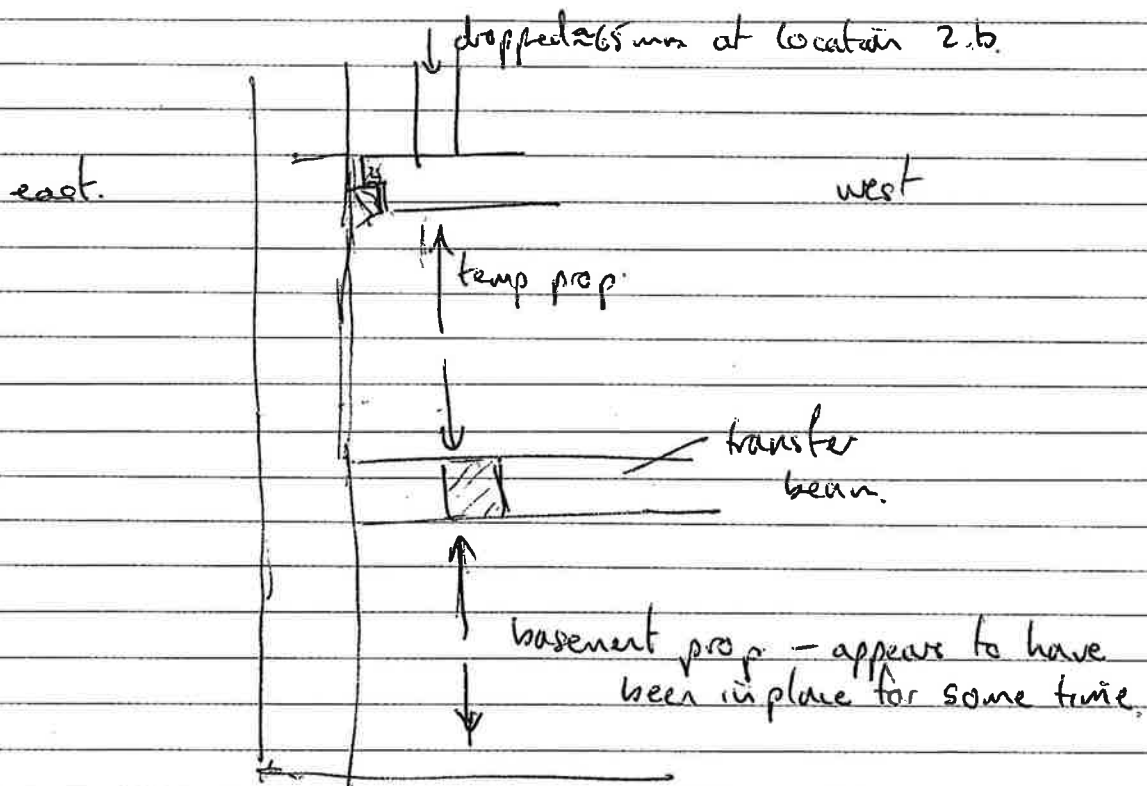 dropped ≈65mm at location 2.b.
east.
west
temp prop.
transfer
beam.
basement prop – appears to have
been in place for some time.